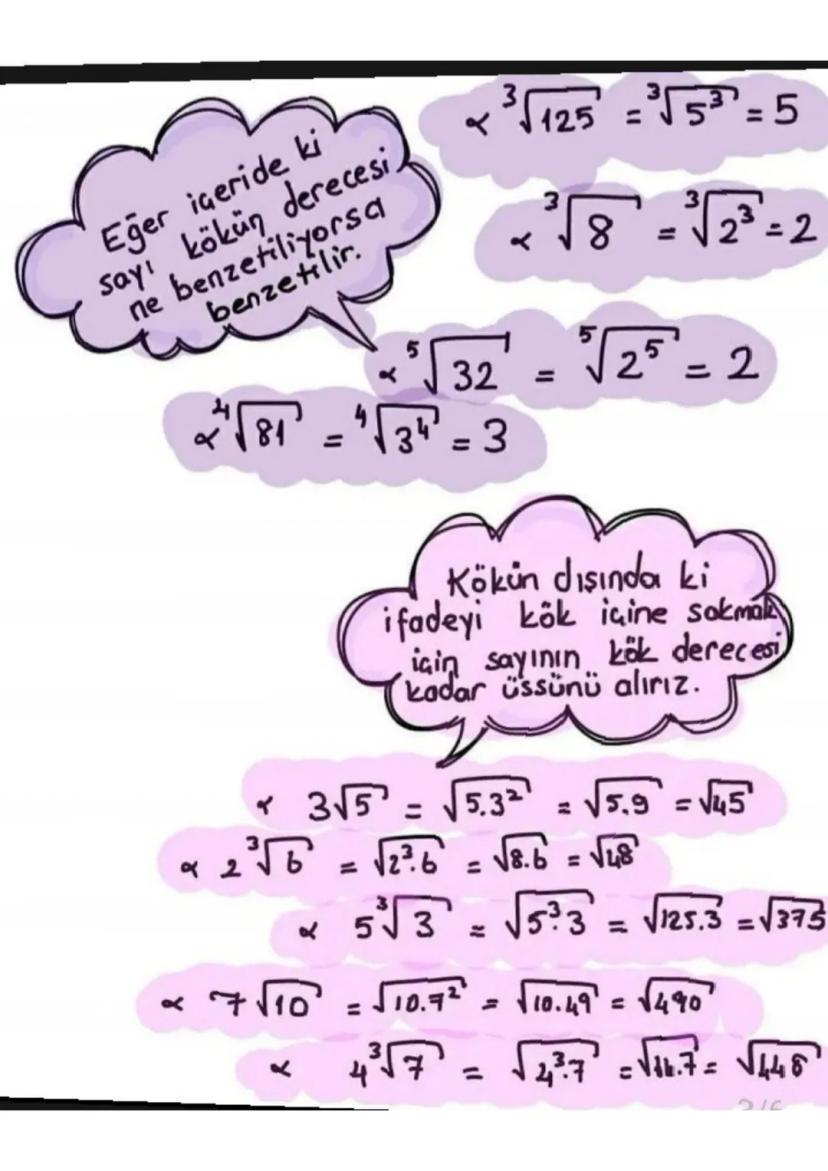 ∝ ³√125 = ³√5³ = 5
Eğer içeride ki
sayı kökün derecesi
ne benzetiliyorsa
benzetilir.
∝ ³√8 = ³√2³ = 2
∝ ⁵√32 = ⁵√2⁵ = 2
∝ ⁴√81 = ⁴√3⁴ = 3
Kökün dışında ki
ifadeyi kök içine sokmak
için sayının kök derecesi
kadar üssünü alırız.
∝ 3√5 = √5.3² = √5.9 = √45
∝ 2 ³√6 = √2³.6 = √8.6 = √48
∝ 5 ³√3 = √5³.3 = √125.3 = √375
∝ 7√10 = √10.7² = √10.49 = √490
∝ 4 ³√7 = √4³.7 = = √448